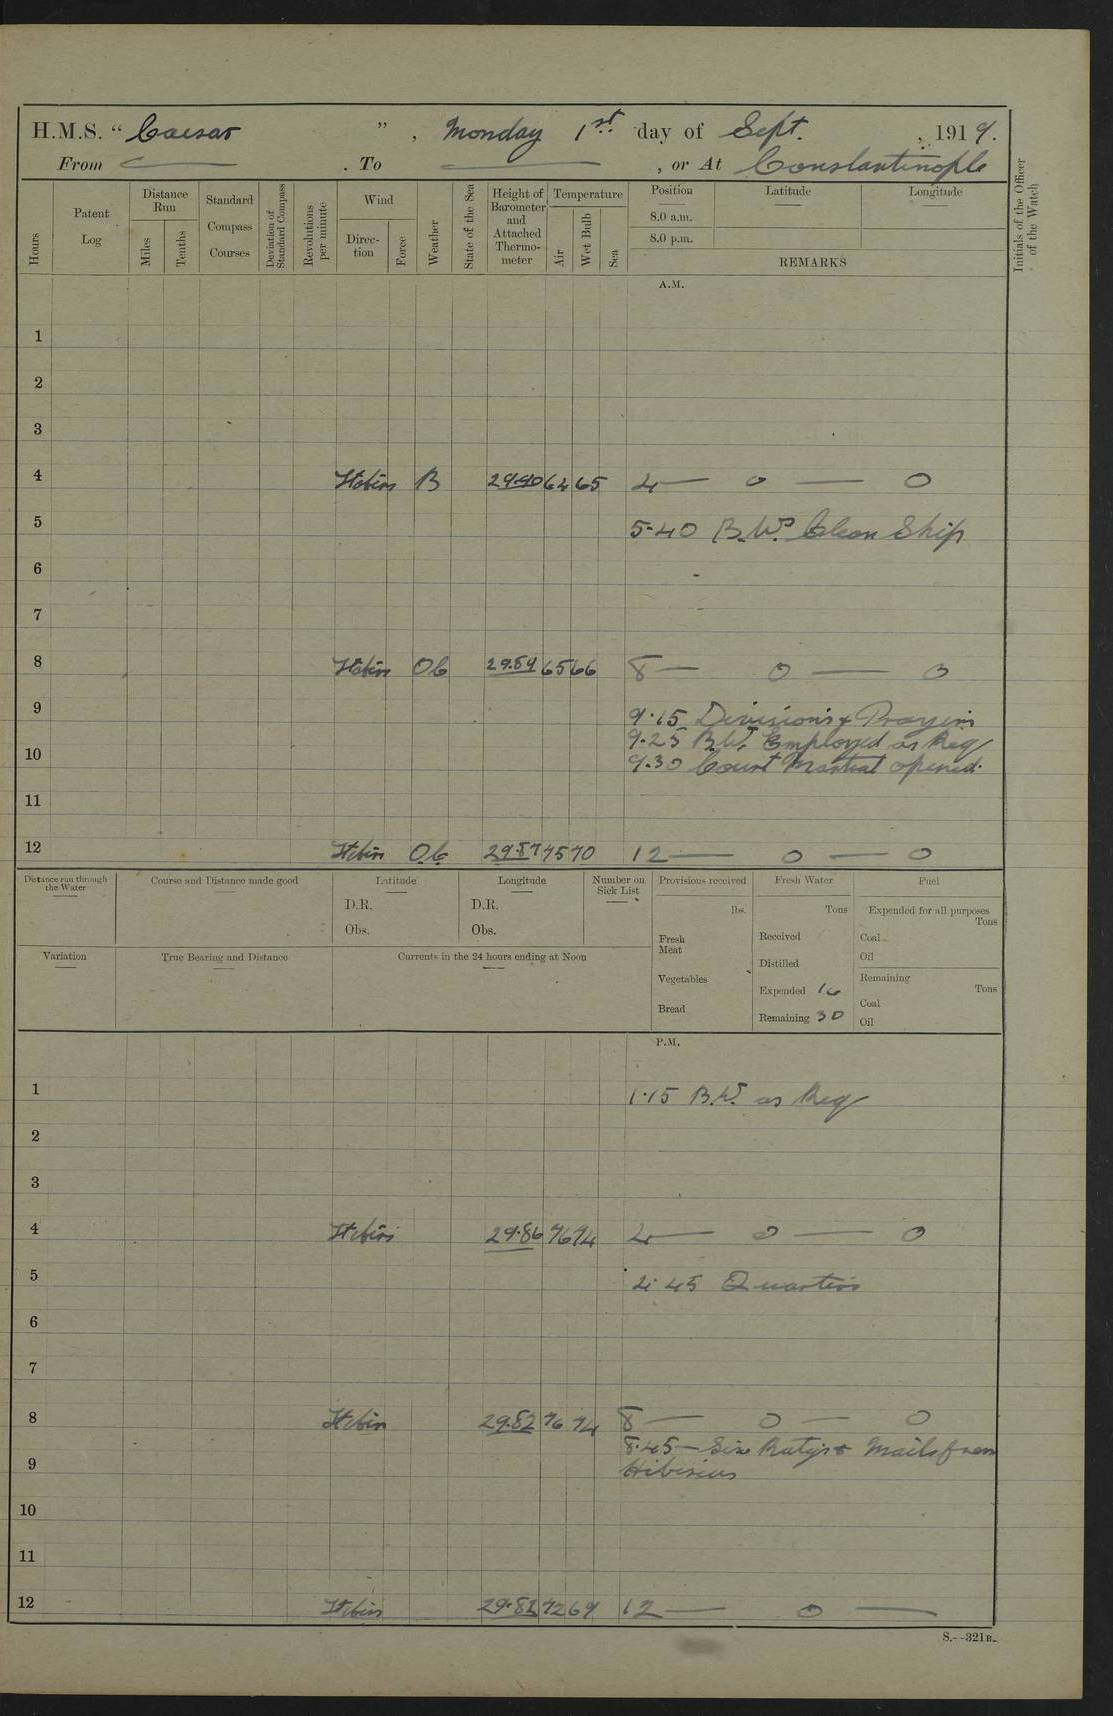 H.M.S. “ Caesar ” , Monday 1st day of Sept. , 1919.
From — . To — , or At Constantinople
Hours
Patent Log
Distance Run
Miles
Tenths
Standard Compass Courses
Deviation of Standard Compass
Revolutions per minute
Wind
Direction
Force
Weather
State of the Sea
Height of Barometer and Attached Thermometer
Temperature
Air
Wet Bulb
Sea
Position Latitude Longitude
8.0 a.m.
8.0 p.m.
REMARKS
Initials of the Officer of the Watch
A.M.
1
2
3
4 B 29.90 64 65 4 — o — o
5 5.40 B.Ws. Clean Ship
6
7
8 65 66 8 — o — o
9 9.15 Divisions & Prayers
9.25 B.W. Employed as Req
10 9.30 Court Martial opened.
11
12 29.87 75 70 12 — o — o
Distance run through the Water
Course and Distance made good
Latitude
D.R.
Obs.
Longitude
D.R.
Obs.
Number on Sick List
Provisions received
lbs.
Fresh Meat
Vegetables
Bread
Fresh Water
Tons
Received
Distilled
Expended 16
Remaining 30
Fuel
Expended for all purposes
Tons
Coal
Oil
Remaining
Tons
Coal
Oil
Variation
True Bearing and Distance
Currents in the 24 hours ending at Noon
P.M.
1 1.15 B.W. as Req
2
3
4 29.86 76 74 4 — o — o
5 4.45 Quarters
6
7
8 29.82 76 74 8 — o — o
8.45 — Six Ratgs & Mails from
9 Hibiscus
10
11
12 29.81 72 69 12 — o —
S.—321B.